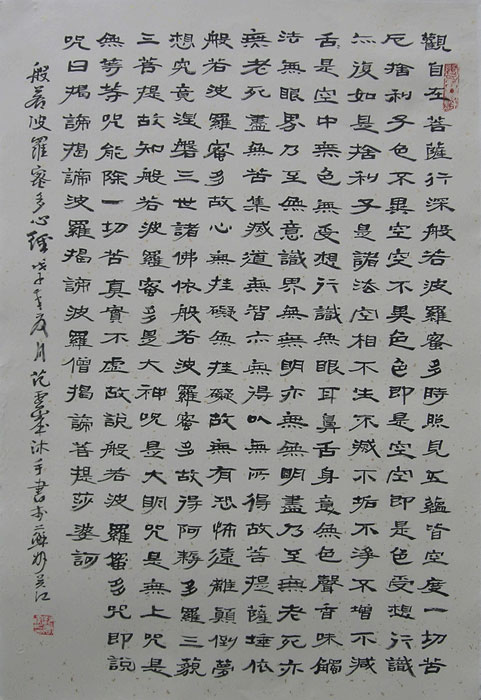 觀自在菩薩行深般若波羅蜜多時照見五蘊皆空度一切苦
厄捨利子色不異空空不異色色即是空空即是色受想行識
亦復如是捨利子是諸法空相不生不滅不垢不淨不增不減
是空中無色無受想行識無眼耳鼻舌身意無色聲香味觸
法無眼界乃至無意識界無無明亦無無明盡乃至無老死亦
無老死盡無苦集滅道無智亦無得以無所得故菩提薩埵依
般若波羅蜜多故心無挂礙無挂礙故無有恐怖遠離顛倒夢
想究竟涅槃三世諸佛依般若波羅蜜多故得阿耨多羅三藐
三菩提故知般若波羅蜜多是大神咒是大明咒是無上咒是
無等等咒能除一切苦真實不虛故說般若波羅蜜多咒即說
咒曰揭諦揭諦波羅揭諦波羅僧揭諦菩提莎婆訶
般若波羅蜜多心經 戊子年夏月范沐手書於蘇州吳江